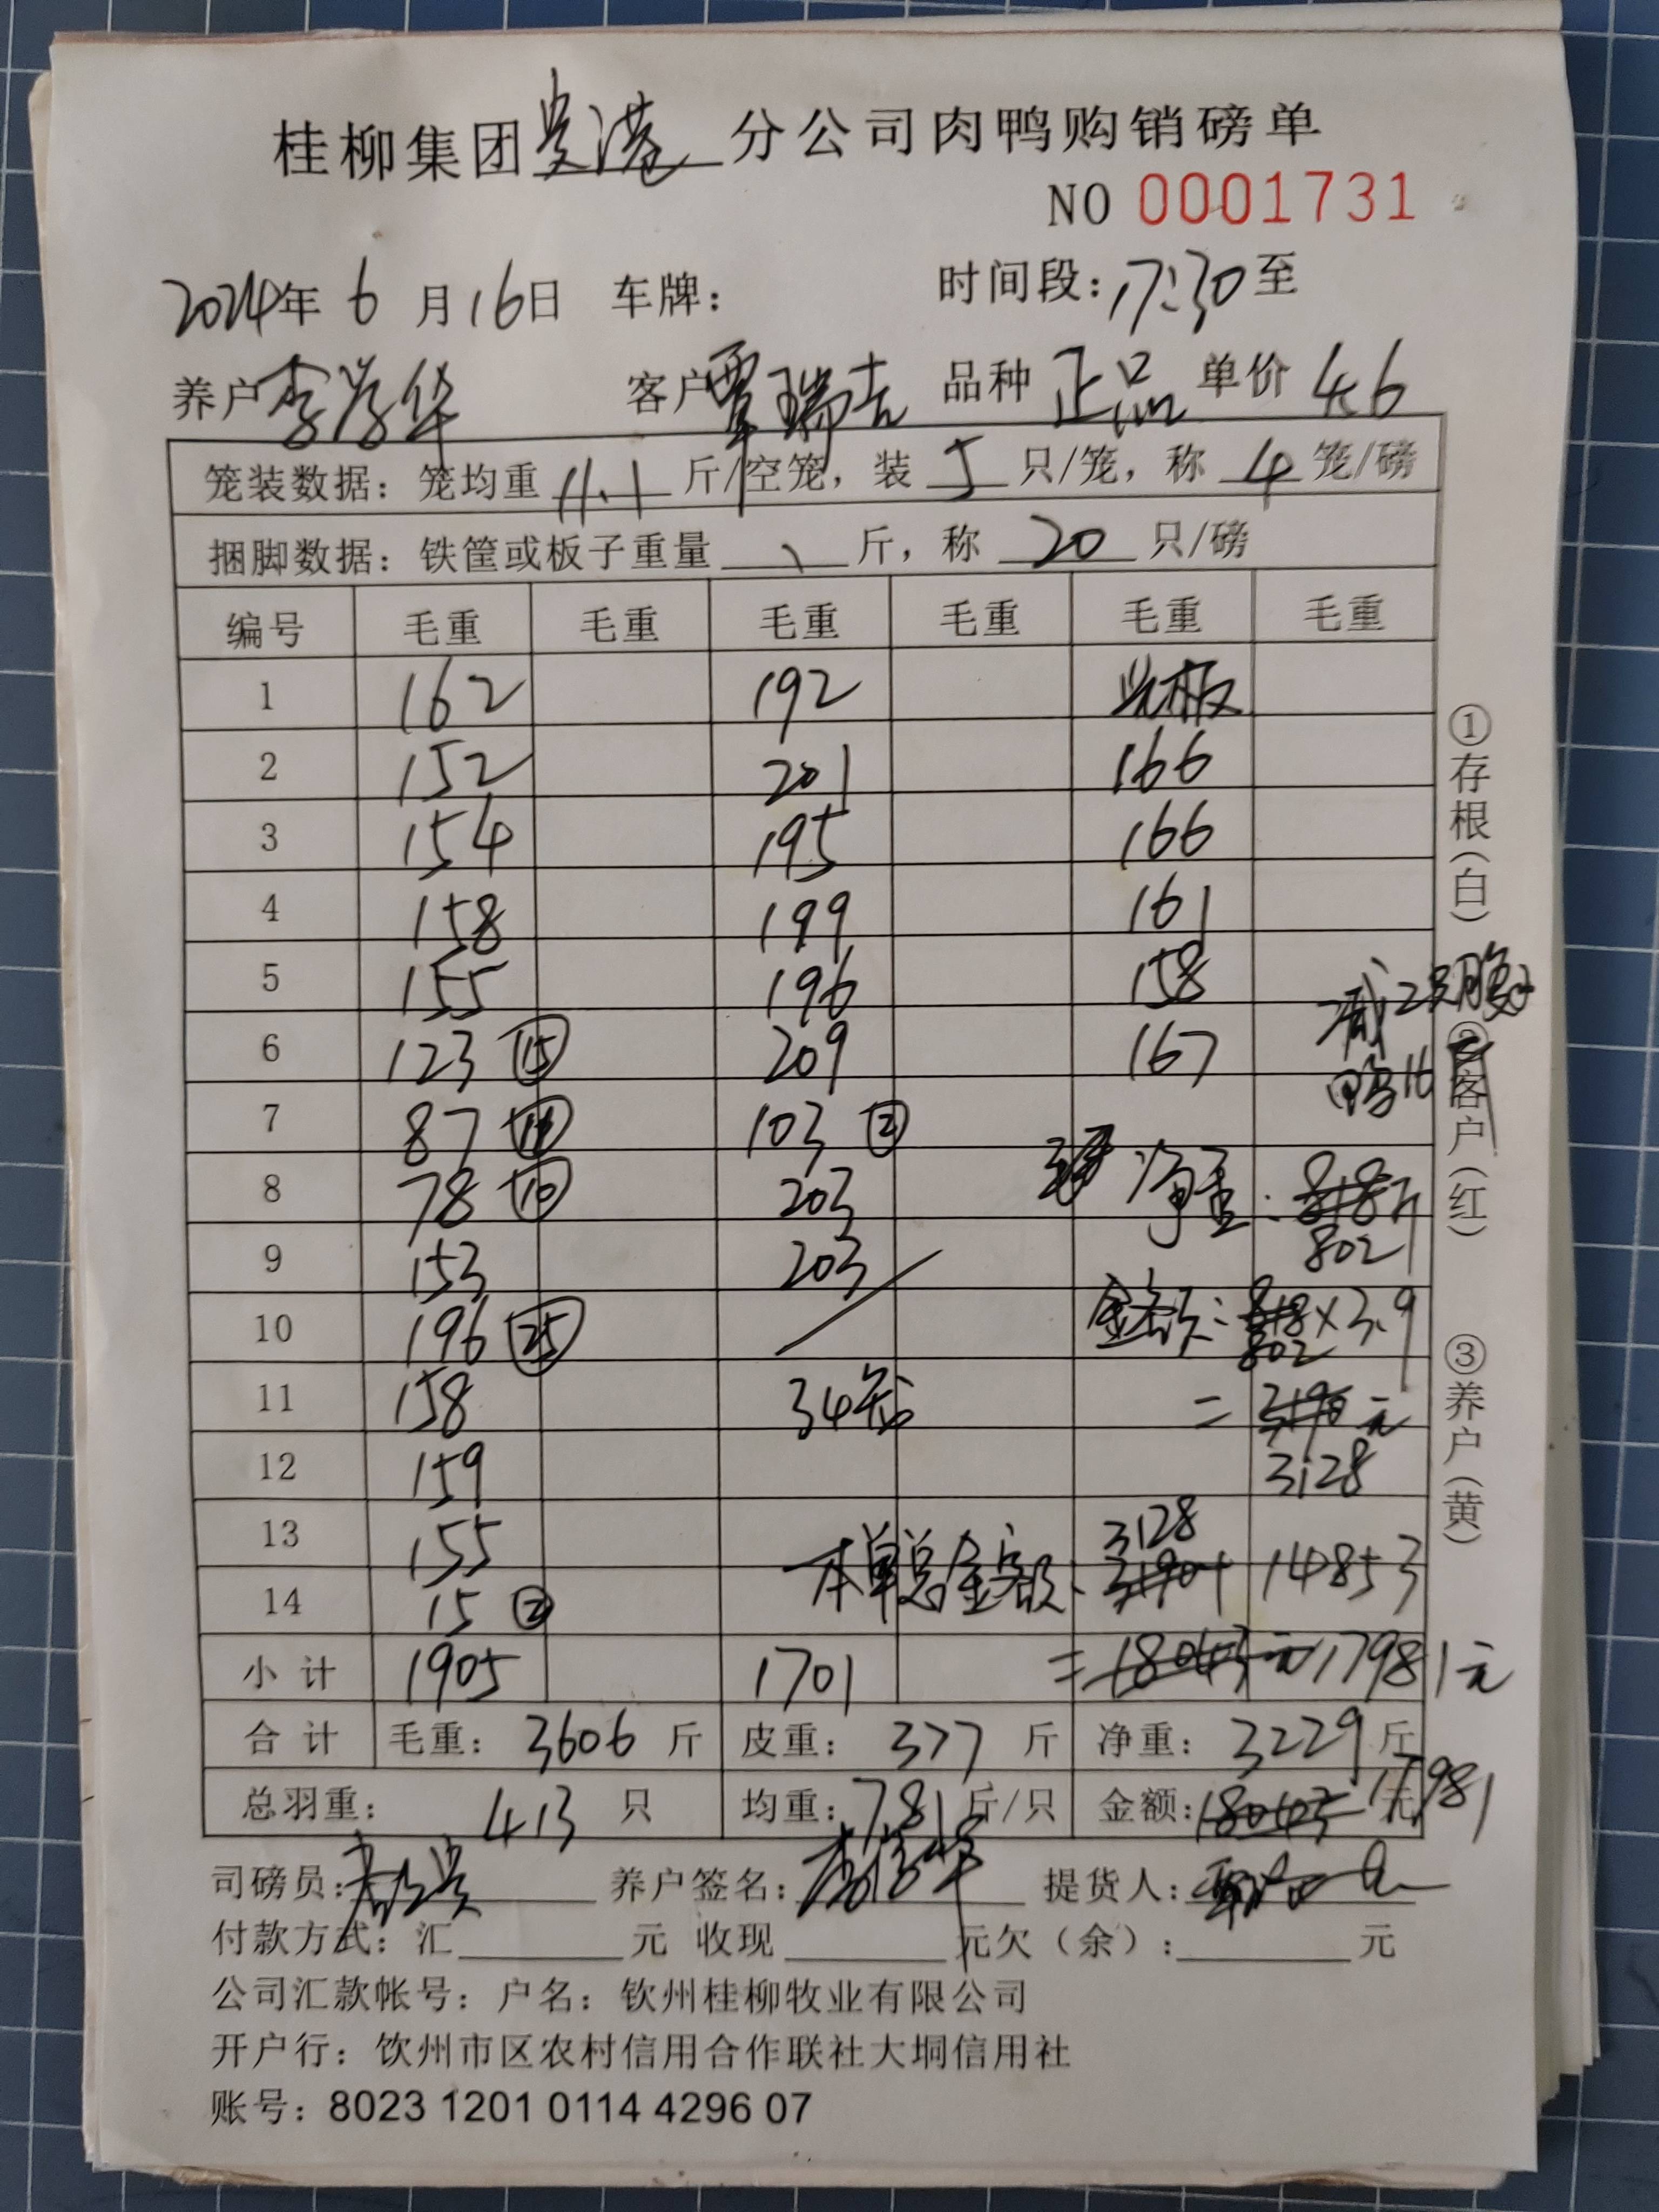 桂柳集团贵港分公司肉鸭购销磅单
NO 0001731
2024年 6 月 16日 车牌： 时间段：17:30至
养户 李学华 客户 覃瑞吉 品种 正品 单价 4.6
笼装数据：笼均重 11.1 斤/空笼，装 5 只/笼，称 4 笼/磅
捆脚数据：铁筐或板子重量 、 斤，称 20 只/磅
编号 毛重 毛重 毛重 毛重 毛重 毛重
1 162 192 光板
2 152 201 166
3 154 195 166
4 158 199 161
5 155 196 158
6 123 ⑮ 209 167 减2只
7 87 103 ② 鸭16斤
8 78 ⑩ 203 净重：818斤
9 153 203 802
10 196 ㉕ 金额：818×3.9
802
11 158 34笼 = 3190元
12 159 3128
13 155 3128
14 15 ② 本单总金额：3190+14853
小计 1905 1701 =18043元17981元
合计 毛重：3606斤 皮重：377斤 净重：3229斤
总羽重：413只 均重：7.81斤/只 金额：18043元 17981
司磅员： 养户签名：李学华 提货人：
付款方式：汇 元 收现 元欠（余）： 元
公司汇款帐号：户名：钦州桂柳牧业有限公司
开户行：钦州市区农村信用合作联社大垌信用社
账号：8023 1201 0114 4296 07
①存根（白）
②客户（红）
③养户（黄）